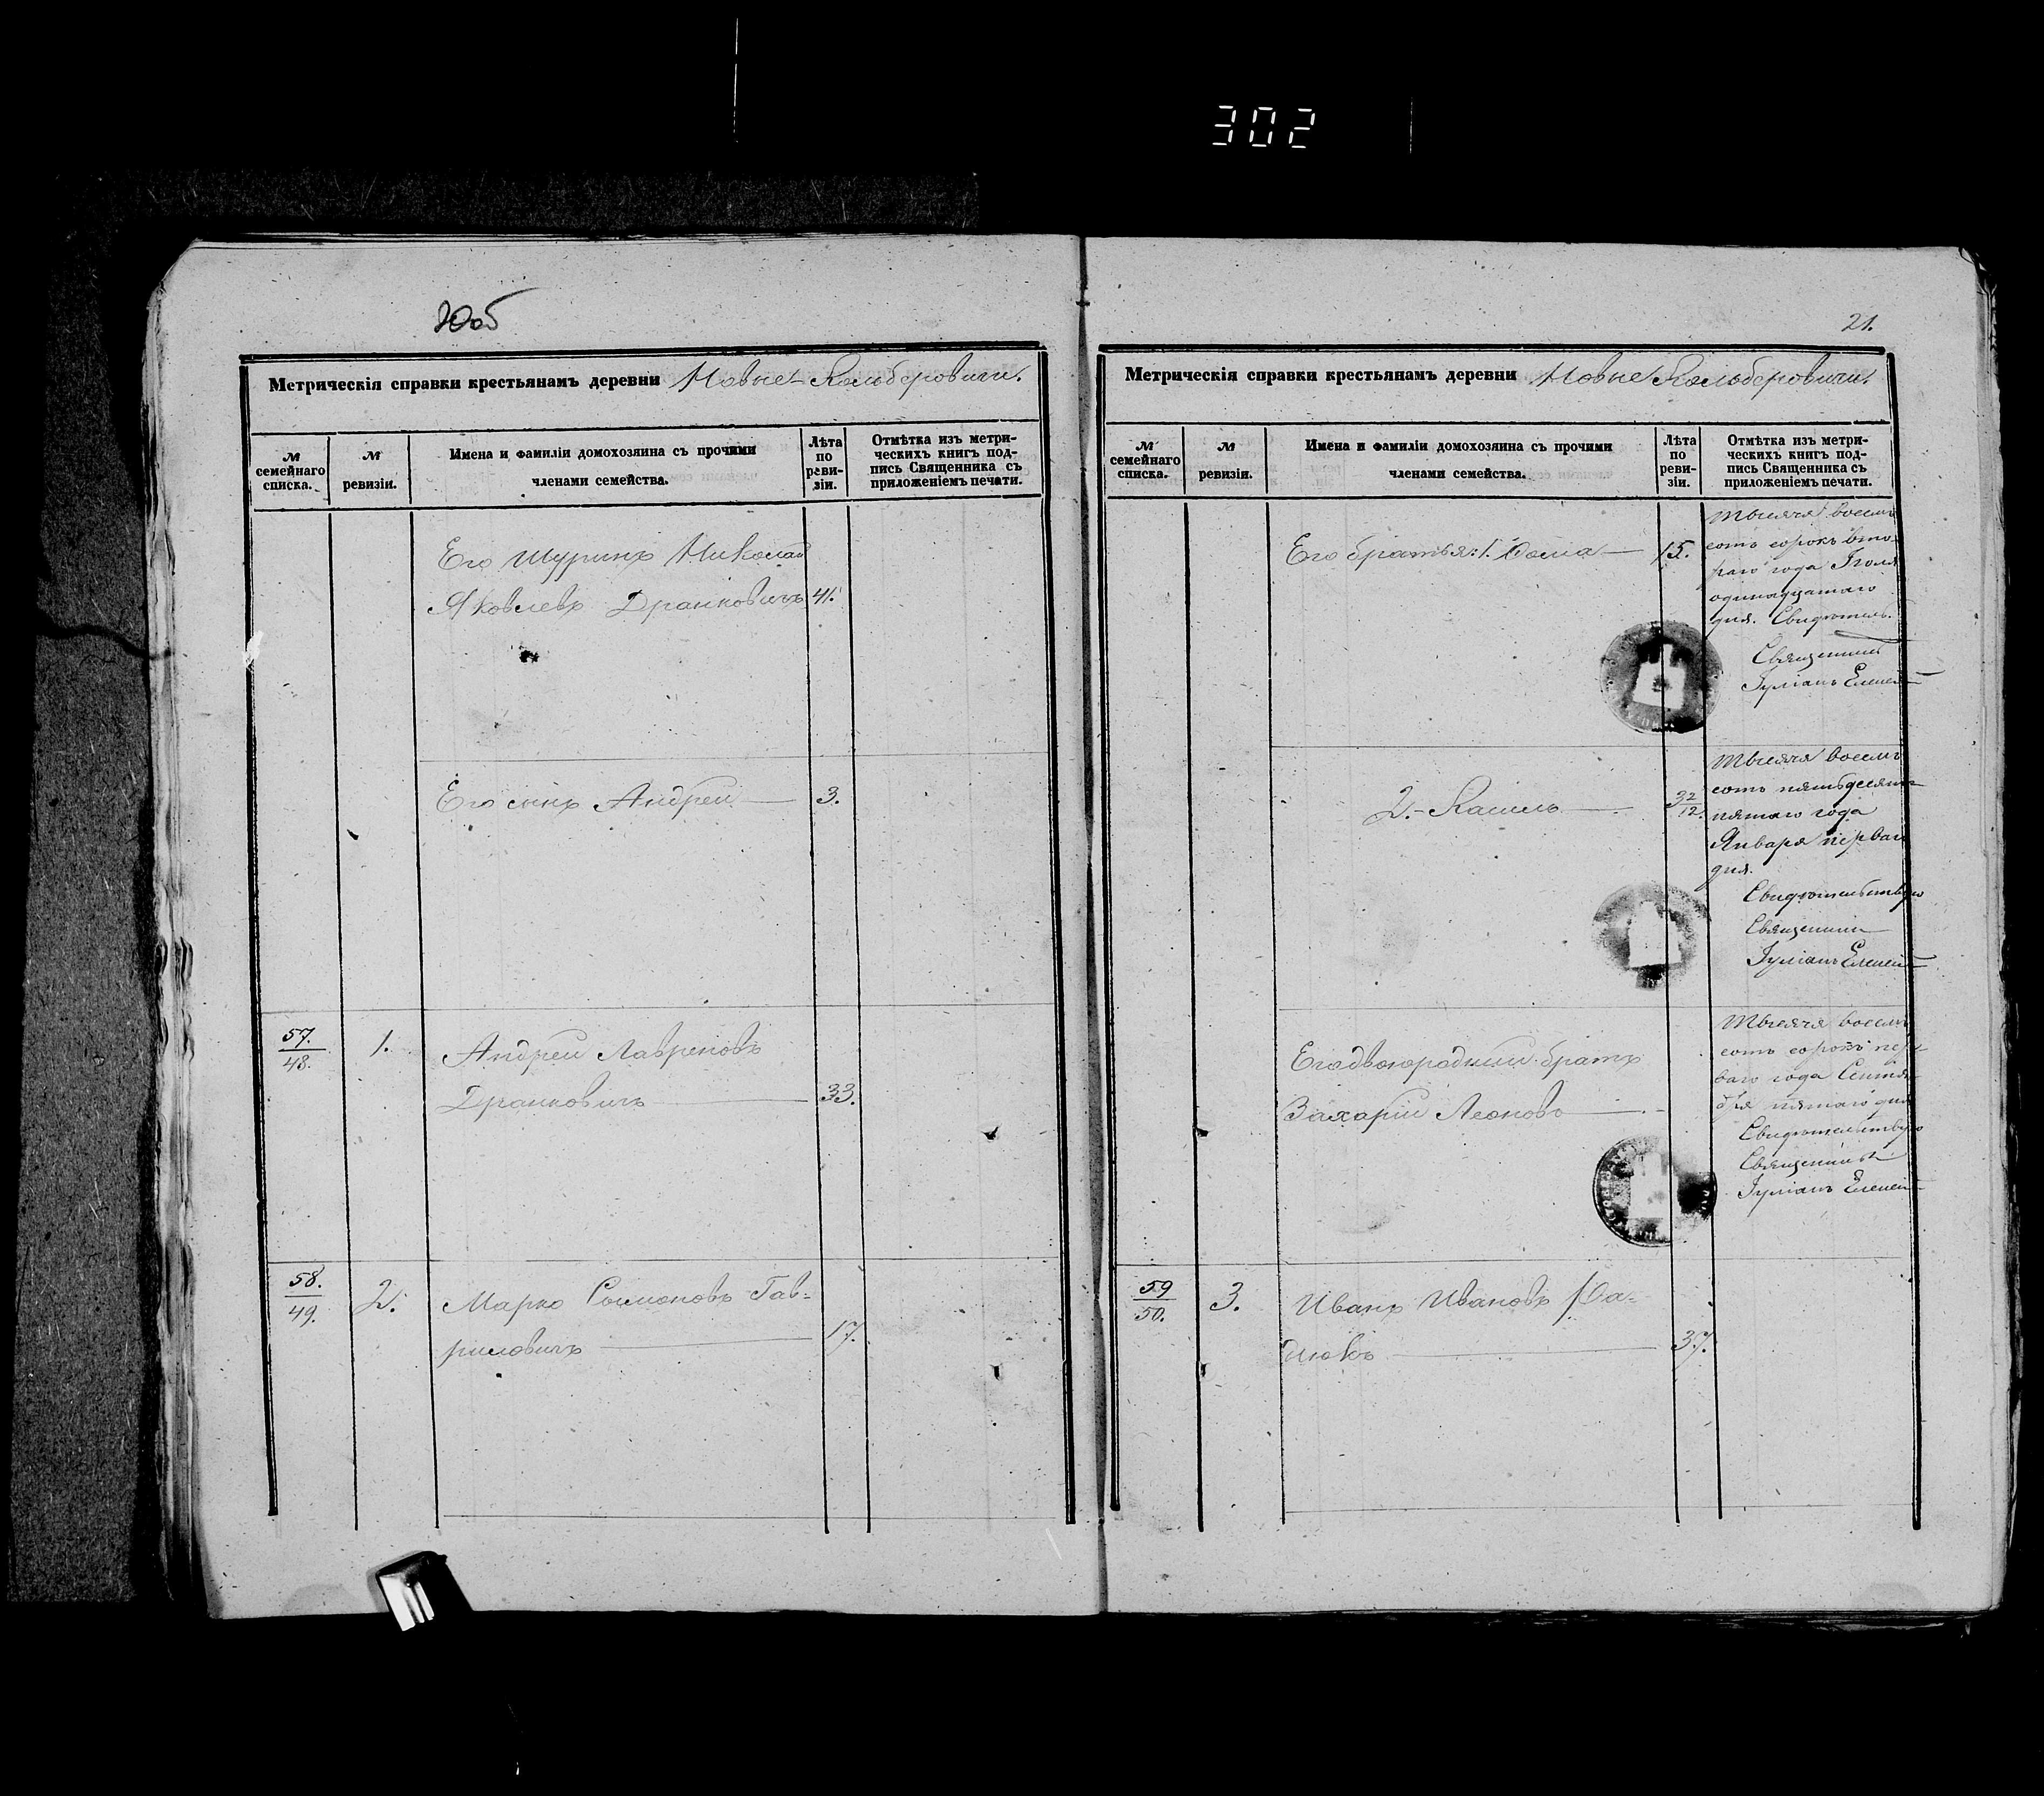 302
20об
Метрическія справки крестьянамъ деревни Новые-Кольберовичи.
№ семейнаго списка.
№ ревизіи.
Имена и фамиліи домохозяина съ прочими
членами семейства.
Лѣта
по
реви-
зіи.
Отмѣтка изъ метри-
ческихъ книгъ под-
пись Священника съ
приложеніемъ печати.
Его Шуринъ Николай
Яковлевъ Дранковичъ 41.
Его сынъ Андрей 3.
57.
48.
1.
Андрей Лавреновъ
Дранковичъ 33.
58.
49.
2.
Марко Сомоновъ Гав-
риловичъ 17.
21.
Метрическія справки крестьянамъ деревни Новые Кольберовичи.
№ семейнаго списка.
№ ревизіи.
Имена и фамиліи домохозяина съ прочими
членами семейства.
Лѣта
по
реви-
зіи.
Отмѣтка изъ метри-
ческихъ книгъ под-
пись Священника съ
приложеніемъ печати.
Его братья: 1. Фома 15.
Тысяча восемь
сотъ сорокъ вто-
раго года Іюля
одинадцатаго
дня. Свидѣтель.
Священникъ
Іуліанъ
2.
3 2/12.
Тысяча восемь
сотъ пятьдесятъ
пятаго года
Января перваго
дня.
Свидѣтельствую
Священникъ
Іуліанъ
Его двоюродный братъ
Захарій Леоновъ
Тысяча восемь
сотъ сорокъ пер-
ваго года Сентя-
бря пятаго дня
Свидѣтельствую
Священникъ
Іуліанъ
59
50.
3.
Иванъ Ивановъ
37.